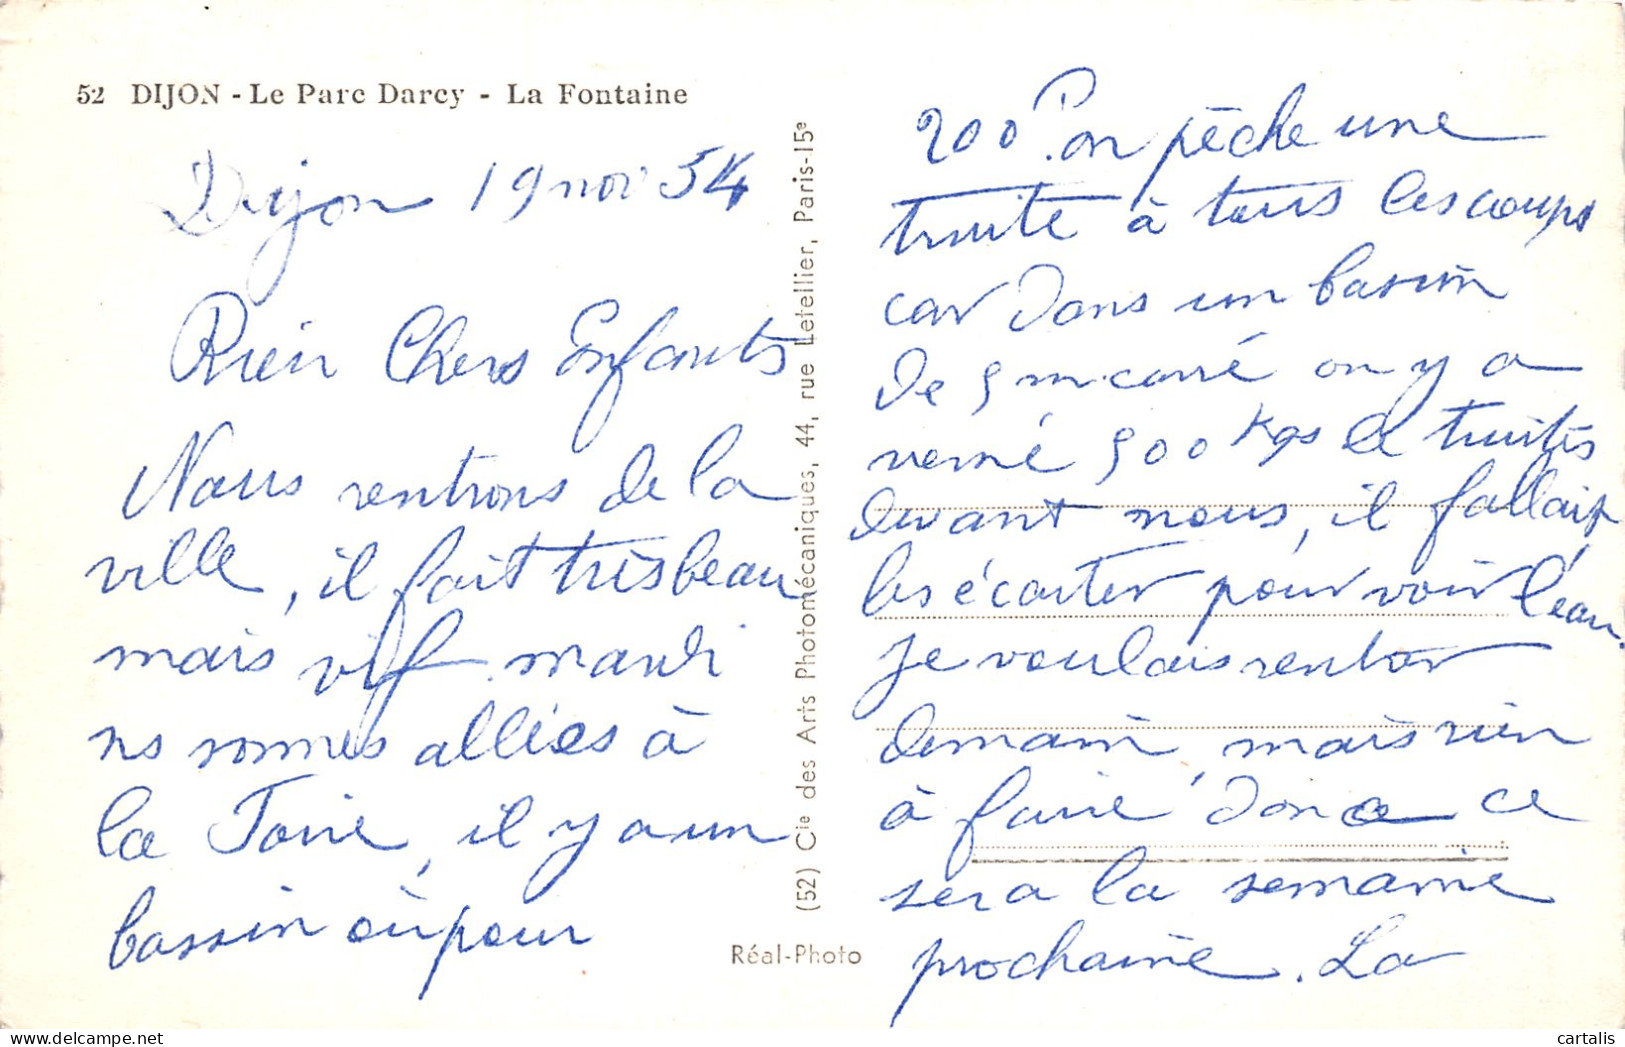 52 DIJON - Le Parc Darcy - La Fontaine
Dijon 19 nov 54
Bien Chers Enfants
Nous rentrons de la
ville, il fait très beau
mais vif. mardi
ns sommes allées à
la Foire, il y a un
bassin où pour
200 F. on pêche une
truite à tous les coups
car dans un bassin
de 5 m. carré on y a
versé 500 Kgs de truites
devant nous, il fallait
les écarter pour voir l'eau.
je voulais rentrer
demain, mais rien
à faire, donc ce
sera la semaine
prochaine. La
(52) Cie des Arts Photomécaniques, 44, rue Letellier, Paris-15e
Réal-Photo
cartalis